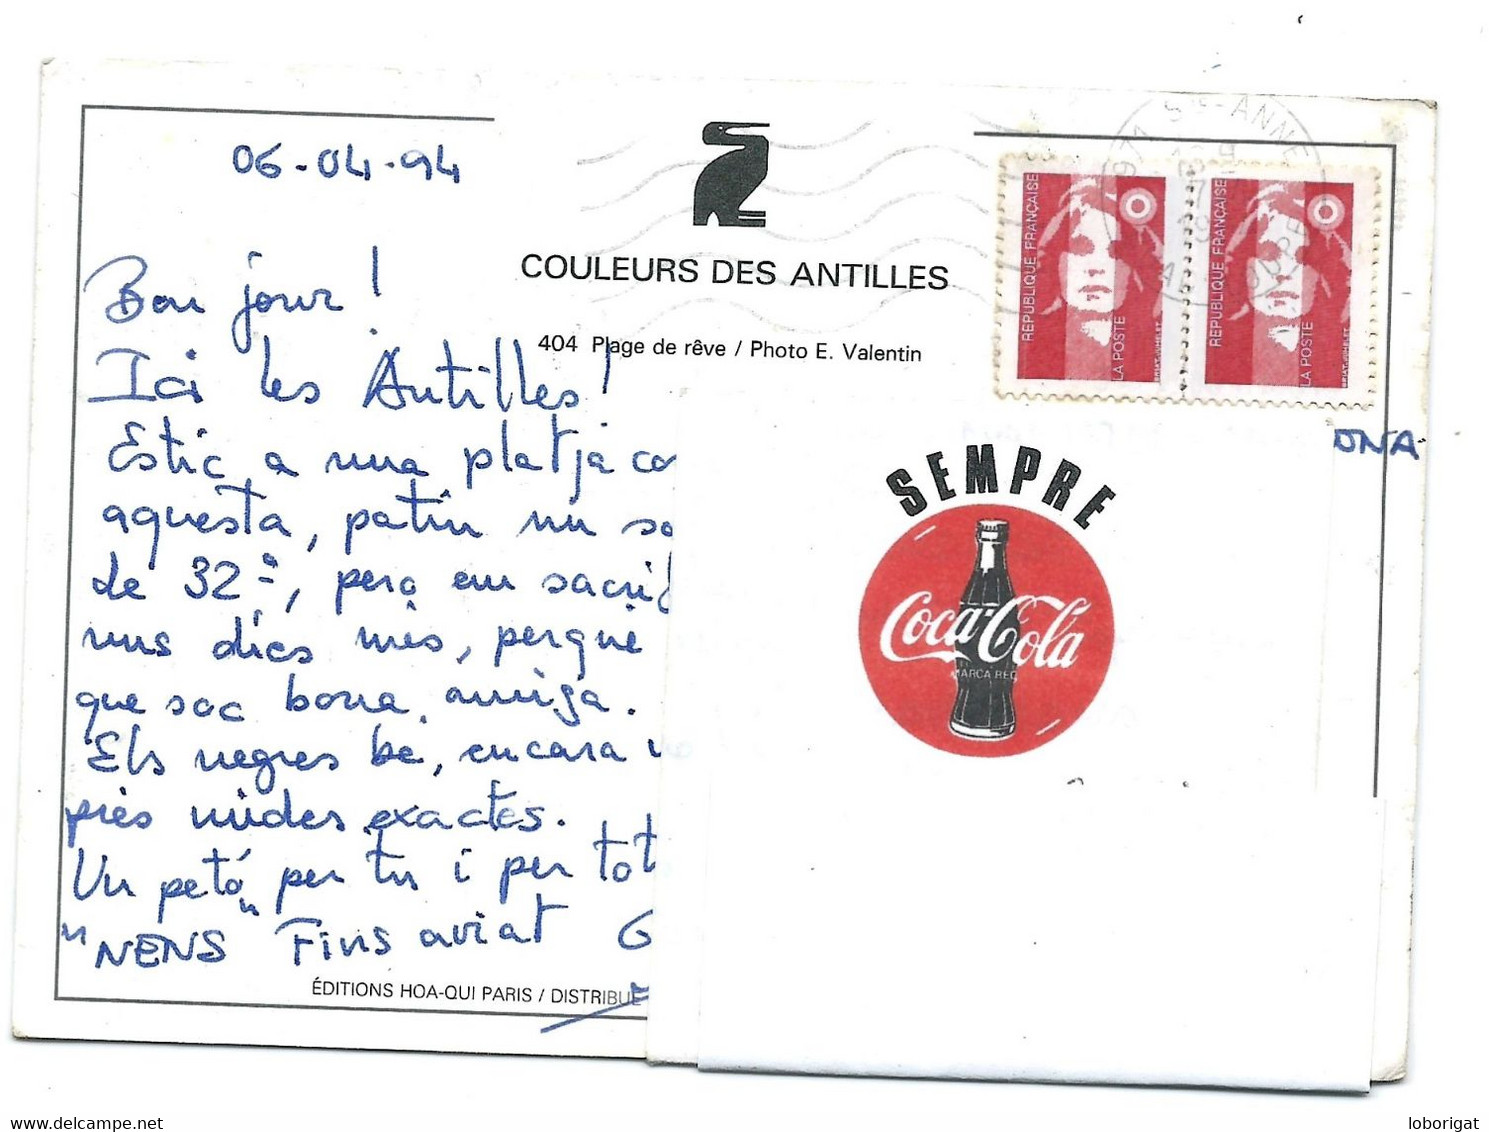 06-04-94
COULEURS DES ANTILLES
404 Plage de rêve / Photo E. Valentin
Bon jour!
Ici les Antilles!
Estic a una platja co
aquesta, patin un so
de 32º, però em sacrif
uns dies més, perquè
que soc bona amiga.
Els negres bé, encara no
près mides exactes.
Un petó per tu i per tot
"NENS" Fins aviat G
ÉDITIONS HOA-QUI PARIS / DISTRIBUÉ
971 STE-ANNE
RÉPUBLIQUE FRANÇAISE
LA POSTE
BRIAT-JUMELET
RÉPUBLIQUE FRANÇAISE
LA POSTE
BRIAT-JUMELET
ONA
SEMPRE
Coca-Cola
MARCA REG
www.delcampe.net
loborigat